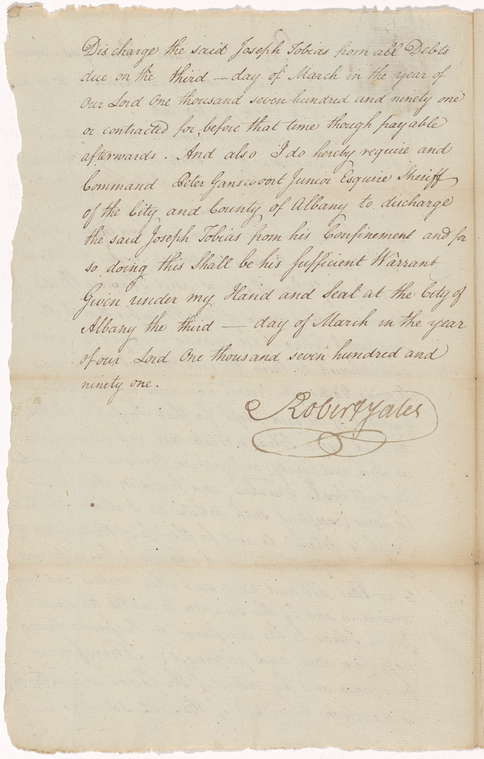 Discharge the said Joseph Tobias from all Debts
due on the third — day of March in the year of
Our Lord One thousand seven hundred and ninety one
or contracted for before that time though payable
afterwards. And also I do hereby require and
Command Peter Gansevoort Junior Esquire Sheriff
of the City and County of Albany to discharge
the said Joseph Tobias from his Confinement and for
so doing this Shall be his Sufficient Warrant
Given under my Hand and Seal at the City of
Albany the third — day of March in the year
of our Lord One thousand seven hundred and
ninety one.
Robert Yates